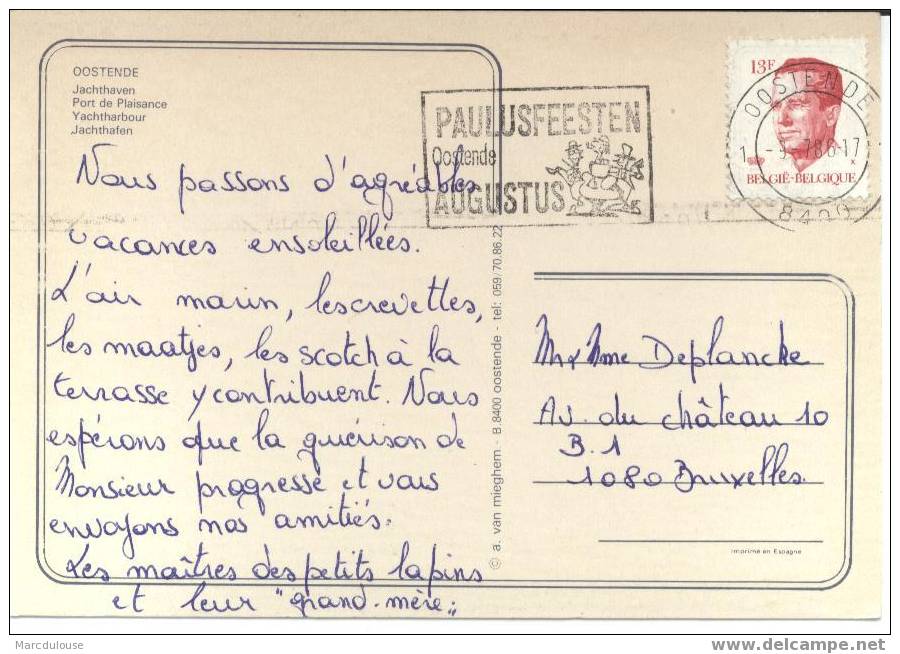 OOSTENDE
Jachthaven
Port de Plaisance
Yachtharbour
Jachthafen
Nous passons d'agréables
vacances ensoleillées.
L'air marin, les crevettes,
les maatjes, les scotch à la
terrasse y contribuent. Nous
espérons que la guérison de
Monsieur progresse et vous
envoyons nos amitiés.
Les maîtres des petits lapins
et leur "grand-mère"
PAULUSFEESTEN
Oostende
AUGUSTUS
13F
BELGIË-BELGIQUE
OOSTENDE
8400
© a. van mieghem. - B.8400 oostende - tel: 059/70.86.22
Mr & Mme Deplancke
Av. du château 10
B.1
1080 Bruxelles
Imprimé en Espagne
Marcdulouse
www.delcampe.net